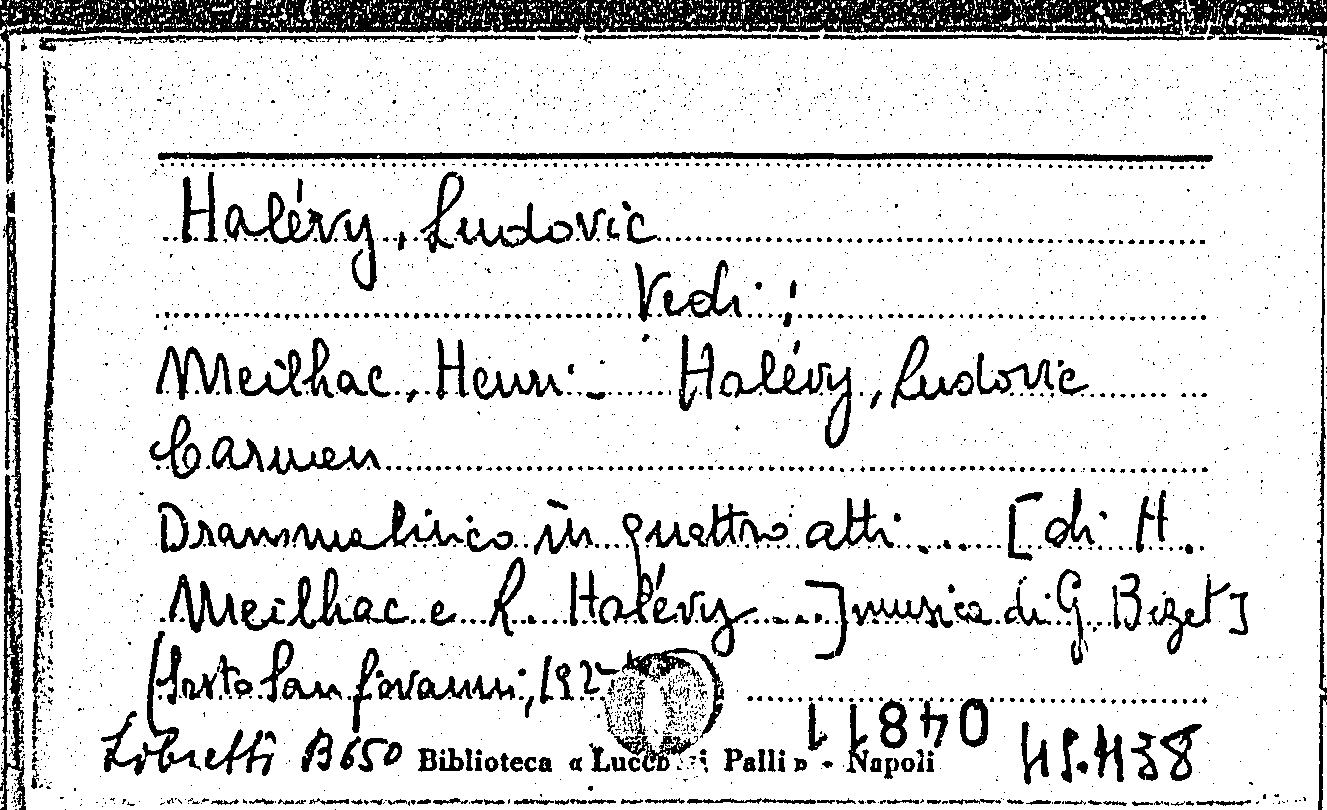 Halévy, Ludovic
Vedi:
Meilhac, Henri - Halévy, Ludovic
Carmen
Dramma lirico in quattro atti ... [di H.
Meilhac e L. Halévy ...] musica di G. Bizet]
(Sesto San Giovanni, 192
Libretti B650 Biblioteca « Lucch i Palli » - Napoli
04811
45.438